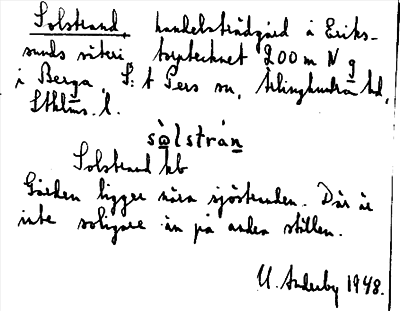 Solstrand, handelsträdgård å Eriks-
sunds säteri, torptecknet 200 m N g
i Berga, S:t Pers sn, Erlinghundra hd,
Sthlms l.
sòlstrán
Solstrand kb
Gården ligger nära sjöstranden. Där är
inte soligare än på andra ställen.
U. Anderby 1948.